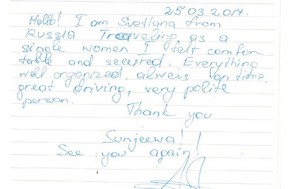 25.03.2017.
Hello! I am Svetlana from
Russia Traveling as a
single women I felt comfor
table and secured. Everything
well organized, always on time,
great driving, very polite
person.
Thank you
Sunjeewa!
See you again!